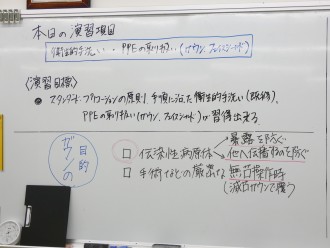 本日の演習項目
衛生的手洗い・PPEの取り扱い(ガウン、フェイスシールド)
〈演習目標〉
スタンダード・プリコーションの原則、手順に沿った衛生的手洗い(既修)、
PPEの取り扱い(ガウン、フェイスシールド)が習得出来る
ガウンの
目的
□ 伝染性病原体
暴露を防ぐ
他へ伝播するのを防ぐ
□ 手術などの厳密な無菌操作時
(滅菌ガウンで覆う)